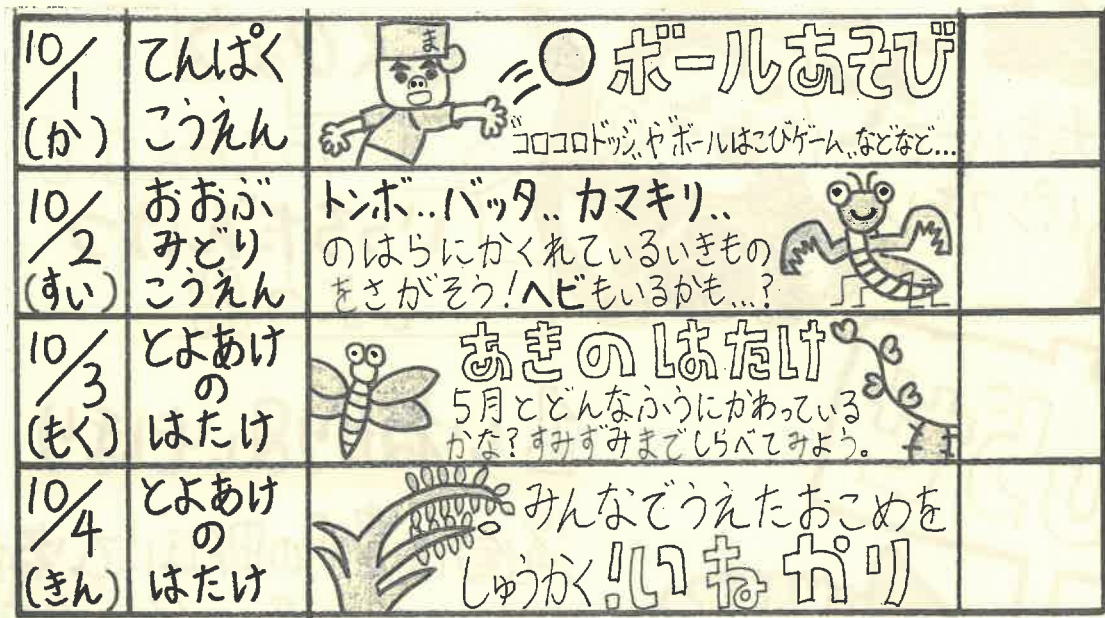 10/1
(か)
てんぱく
こうえん
ま
ボールあそび
"コロコロドッジ"や"ボールはこびゲーム"などなど...
10/2
(すい)
おおぶ
みどり
こうえん
トンボ..バッタ..カマキリ..
のはらにかくれているいきもの
をさがそう!ヘビもいるかも...?
10/3
(もく)
とよあけ
の
はたけ
あきのはたけ
5月とどんなふうにかわっている
かな?すみずみまでしらべてみよう。
10/4
(きん)
とよあけ
の
はたけ
みんなでうえたおこめを
しゅうかく!いねかり